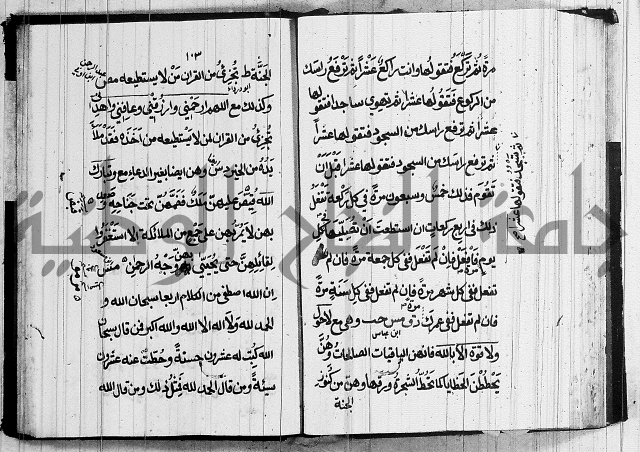 مرة ثم تركع فتقولها وانت راكع عشرا ثم ترفع راسك
من الركوع فتقولها عشرا ثم تهوي ساجدا فتقولها
عشرا ثم ترفع راسك من السجود فتقولها عشرا
ثم ترفع راسك من السجود فتقولها عشرا قبل ان
تقوم فذلك خمس وسبعون مرة في كل ركعة تفعل
ذلك في اربع ركعات ان استطعت ان تصليها في كل
يوم فافعل فان لم تفعل ففي كل جمعة مرة فان لم
تفعل ففي كل شهر مرة فان لم تفعل ففي كل سنة مرة
فان لم تفعل ففي عمرك مرة د ق مس حب وهي مع لا حول
ابن عباس
ولا قوة الا بالله فانهن الباقيات الصالحات وهن
يحططن الخطايا كما تحط الشجرة ورقها وهن من كنوز
الجنة
١٠٣
الجنة ط تجزئ من القران من لا يستطيعه مص
ابو درداء
وكذلك مع اللهم ارحمني وارزقني وعافني واهدني
تجزئ من القران لمن لا يستطيعه من اخذه فقد ملأ
يده من الخير د س وهن ايضا بغير الدعاء مع وتبارك
الله يقبض عليهن ملك فضمهن تحت جناحه وصعد
بهن لا يمر بهن على جمع من الملائكة الا استغفروا
لقائلهن حتى يحيى بهن وجه الرحمن مس
ان الله اصطفى من الكلام اربعا سبحان الله و
الحمد لله ولا اله الا الله والله اكبر فمن قال سبحان
الله كتبت له عشرون حسنة وحطت عنه عشرون
سيئة ومن قال الحمد لله فمثل ذلك ومن قال الله
جامعة النجاح الوطنية